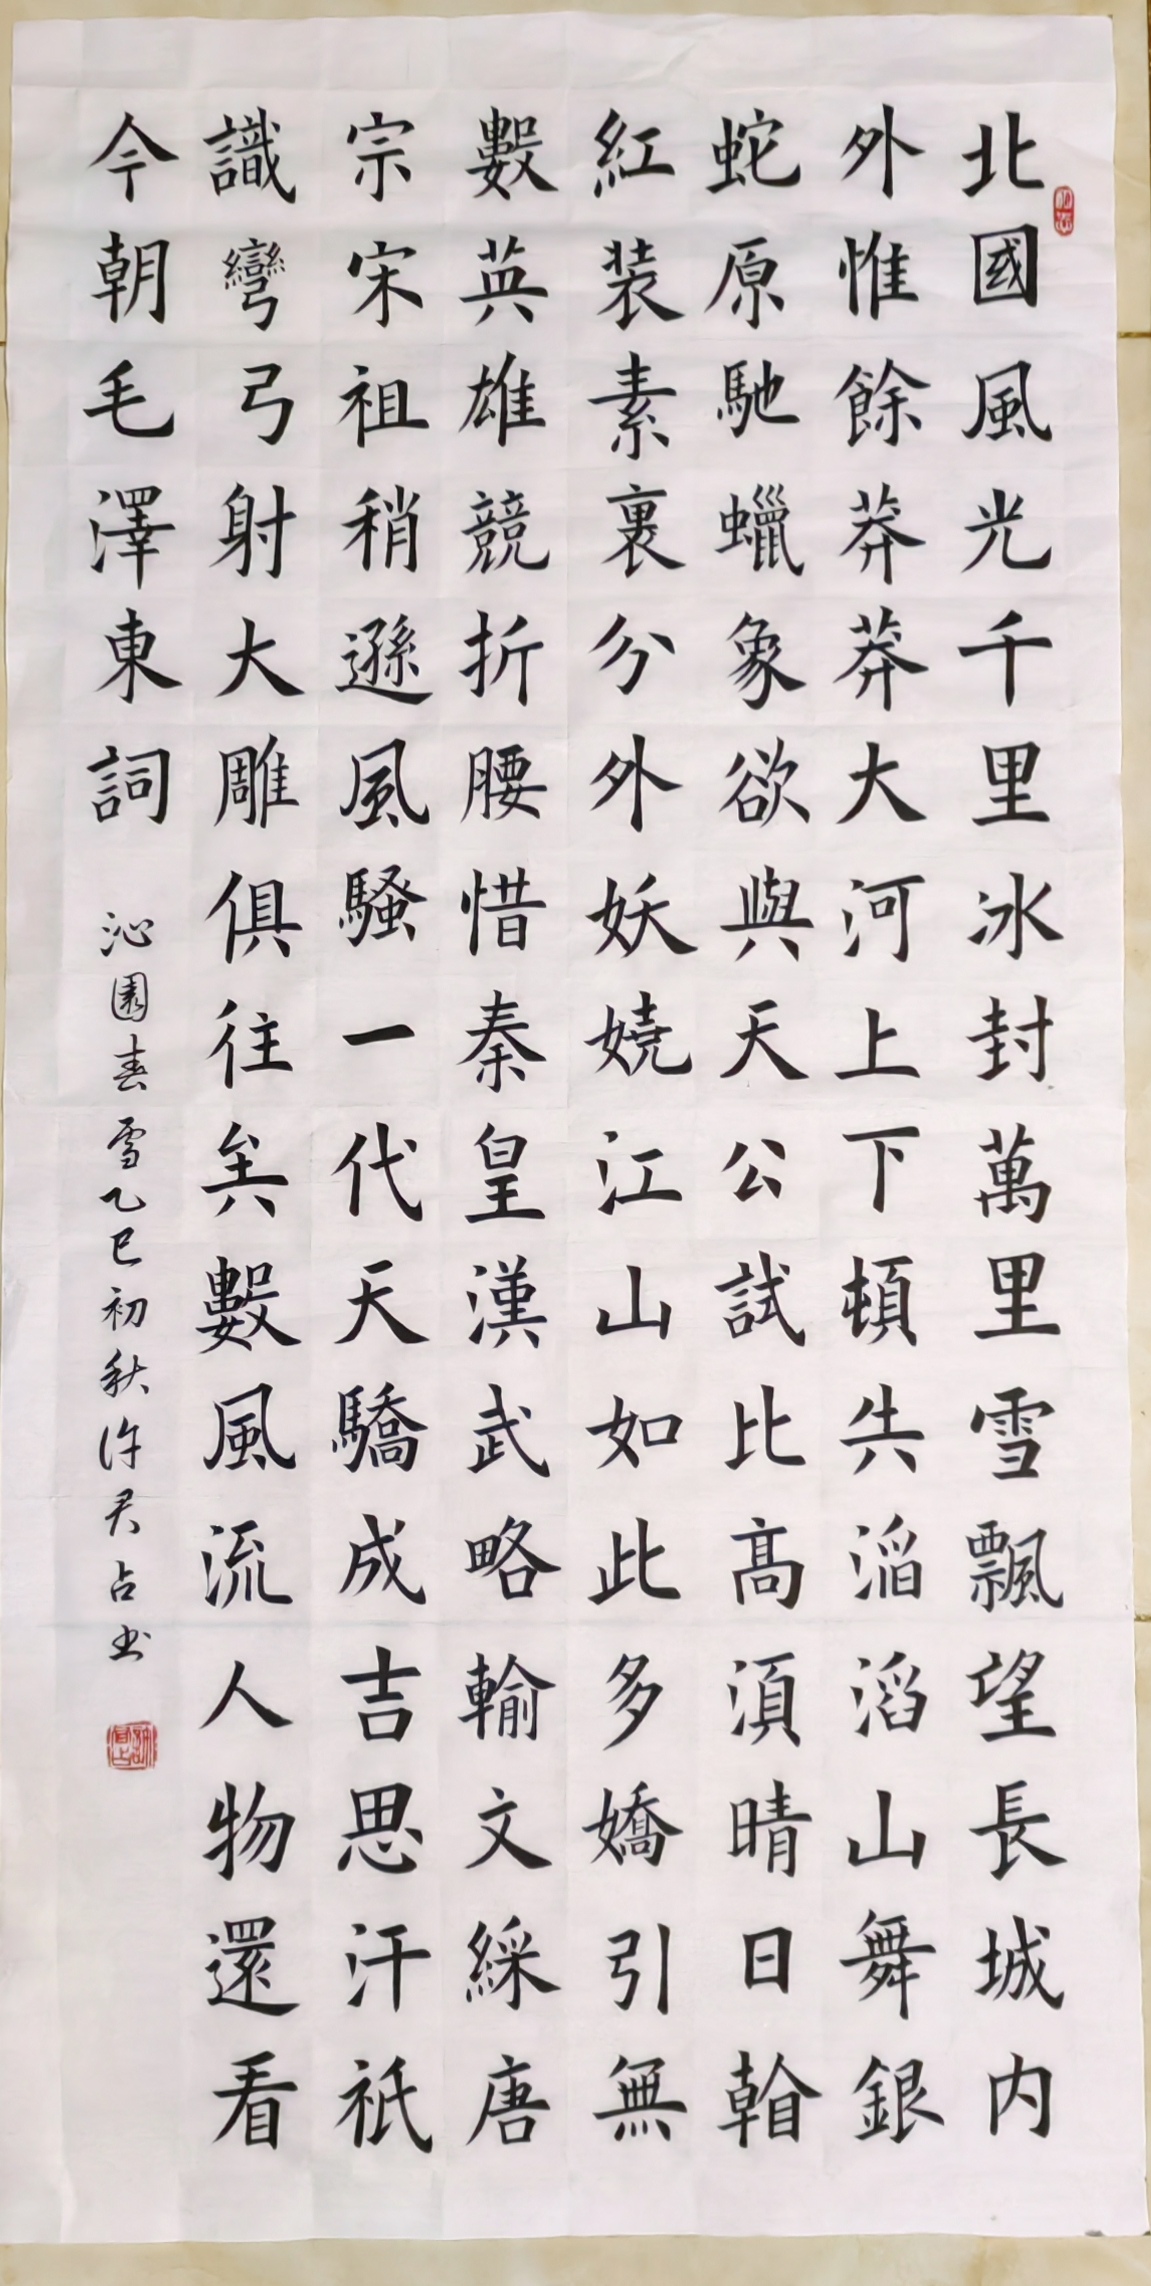 北國風光千里冰封萬里雪飄望長城内
外惟餘莽莽大河上下頓失滔滔山舞銀
蛇原馳蠟象欲與天公試比髙湏晴日看
紅装素裹分外妖嬈江山如此多嬌引無
數英雄競折腰惜秦皇漢武略輸文綵唐
宗宋祖稍遜風騷一代天驕成吉思汗祇
識彎弓射大雕俱往矣數風流人物還看
今朝毛澤東詞 沁園春雪乙巳初秋许君占书